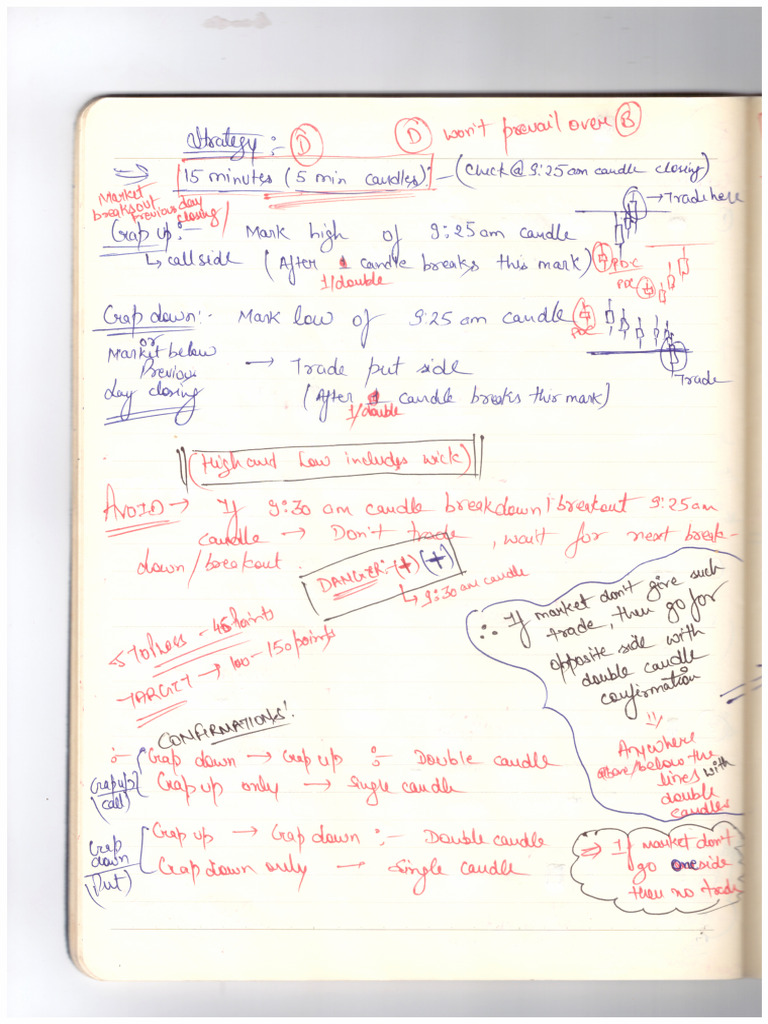 Strategy :- D
D won't prevail over B
⇒ 15 minutes (5 min candles): - (check @ 9:25 am candle closing)
Market breaksout previous day closing/
→ Trade here
Gap up :- Mark high of 9:25 am candle
↳ call side (After 1 candle breaks this mark)
1/double
PDC
PDC
Gap down :- Mark low of 9:25 am candle
PDC
or
Market below Previous day closing
→ Trade put side
Trade
(After 1 candle breaks this mark)
1/double
(High and Low includes wick)
AVOID → If 9:30 am candle breakdown/breakout 9:25 am
candle → Don't trade, wait for next break-
down/breakout.
DANGER :- (+) (+)
↳ 9:30 am candle
∴ If market don't give such
trade, then go for
opposite side with
double candle
confirmation
⇓
Anywhere
above/below the
lines with
double
candles
STOPLOSS - 45 Points
TARGET → 100 - 150 points
CONFIRMATIONS!
Gap up? (call)
:- Gap down → Gap up :- Double candle
Gap up only → Single candle
Gap down (Put)
Gap up → Gap down :- Double candle
Gap down only → Single candle
⇒ If market don't
go oneside
then no trade